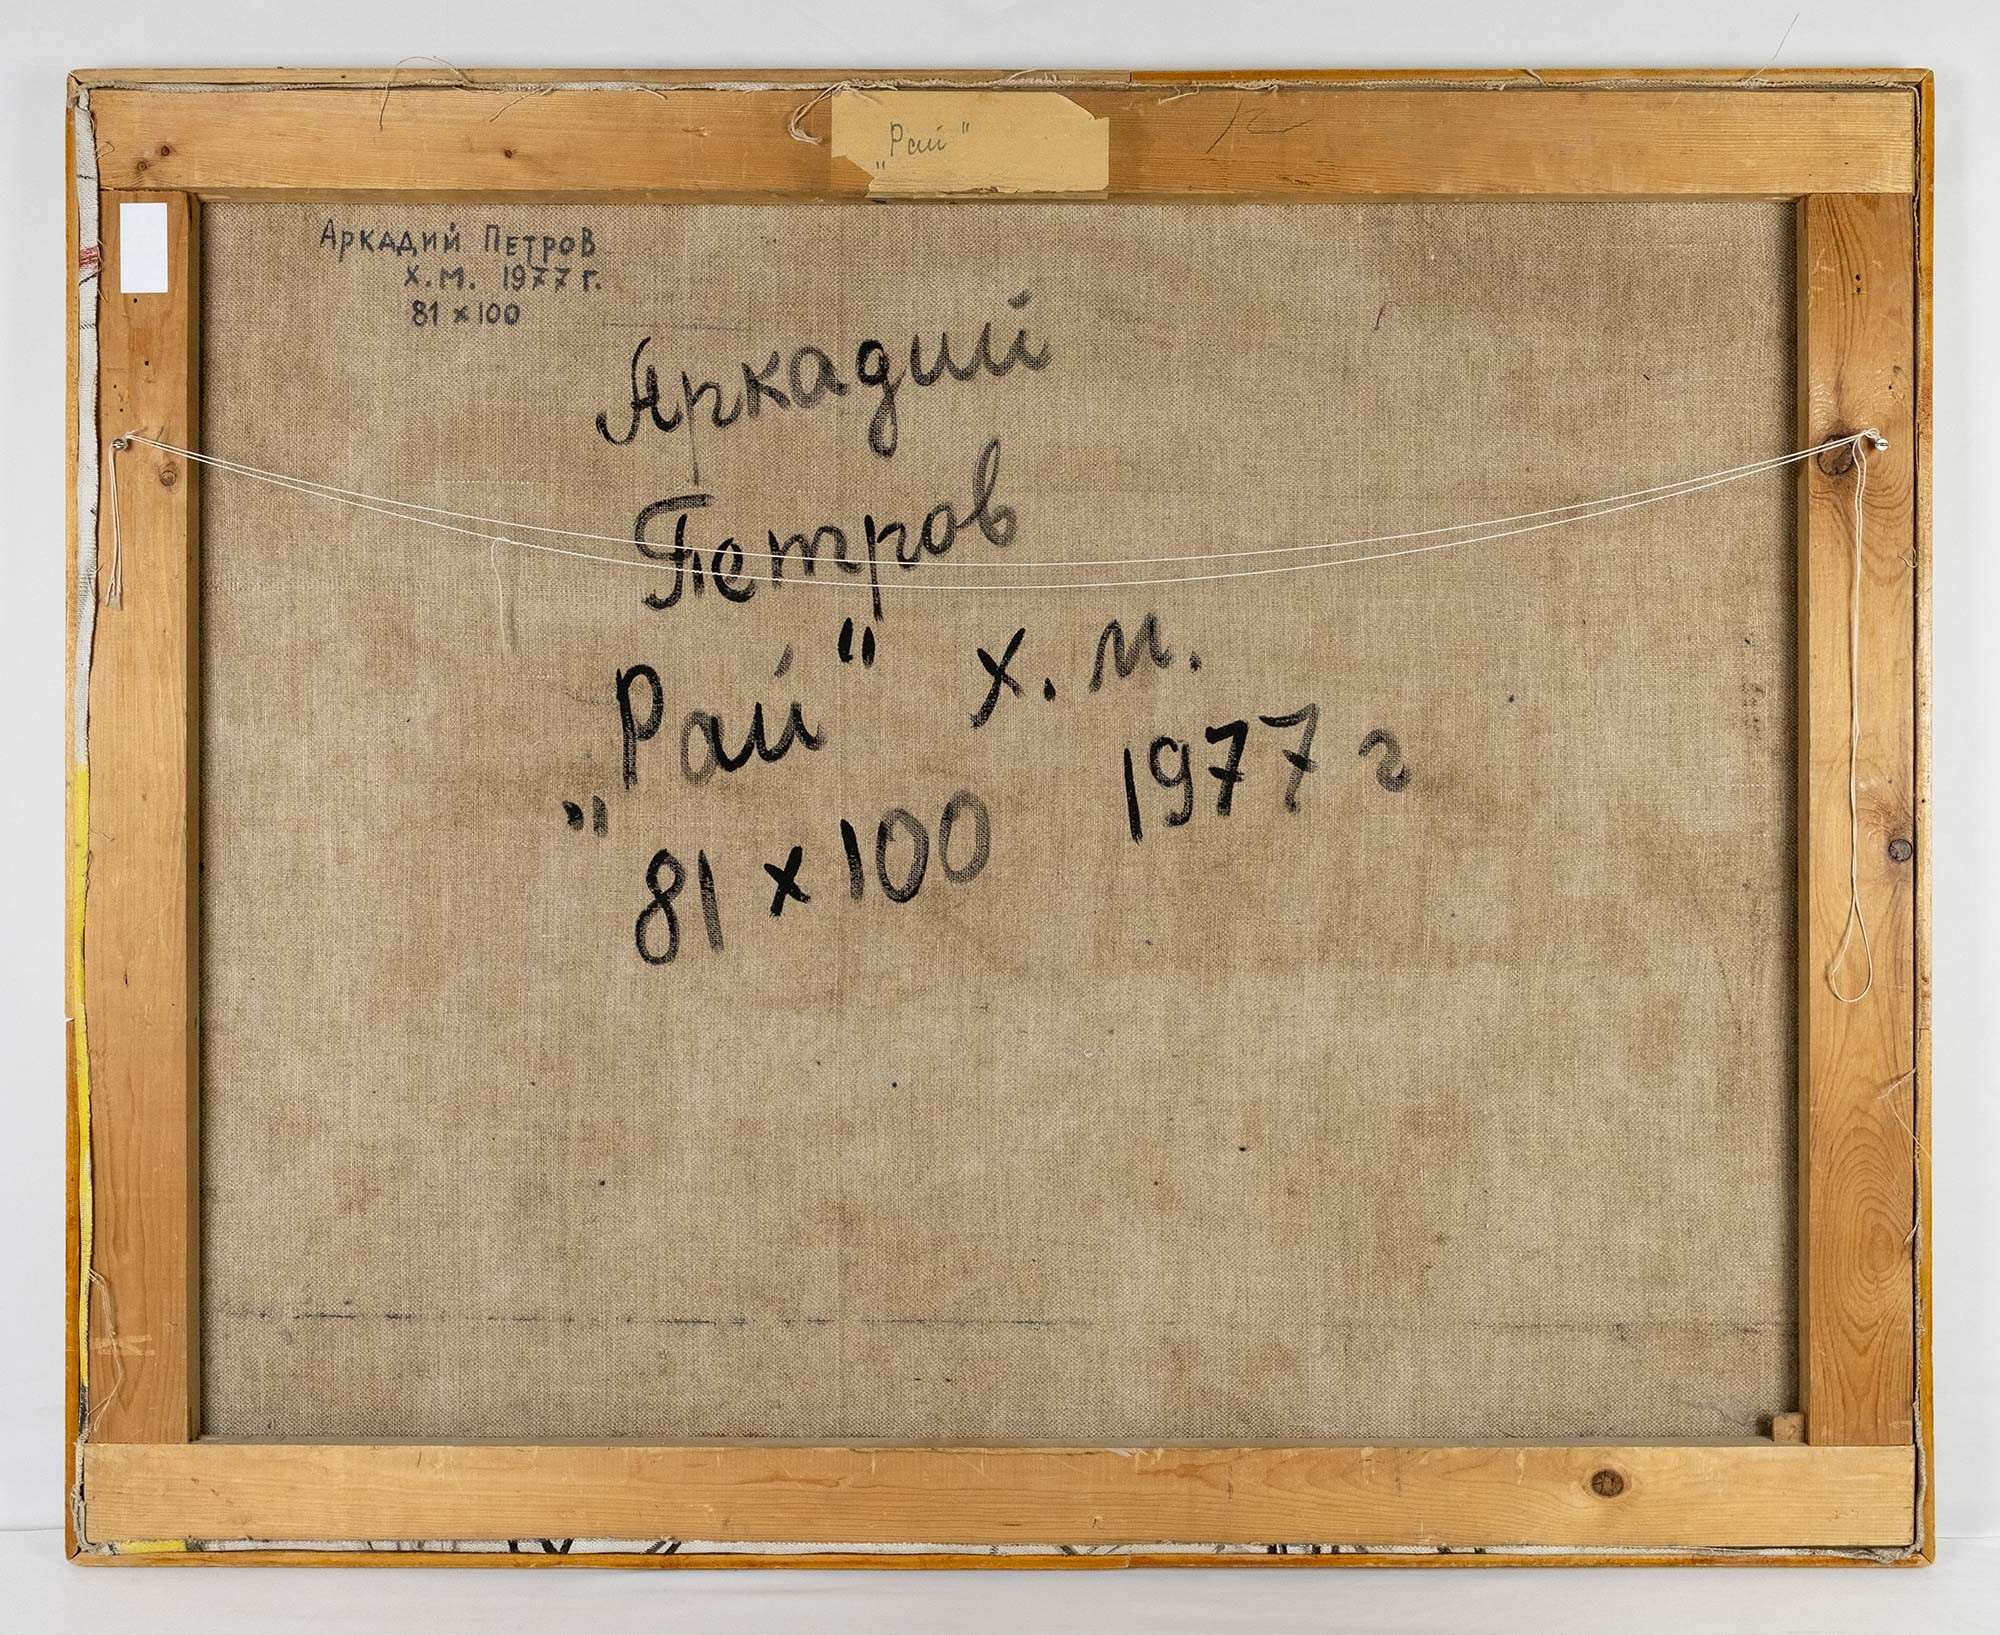 „Рай"
Аркадий Петров
х.м. 1977 г.
81 х 100
Аркадий
Петров
„Рай" х.м.
1977 г
81 х 100